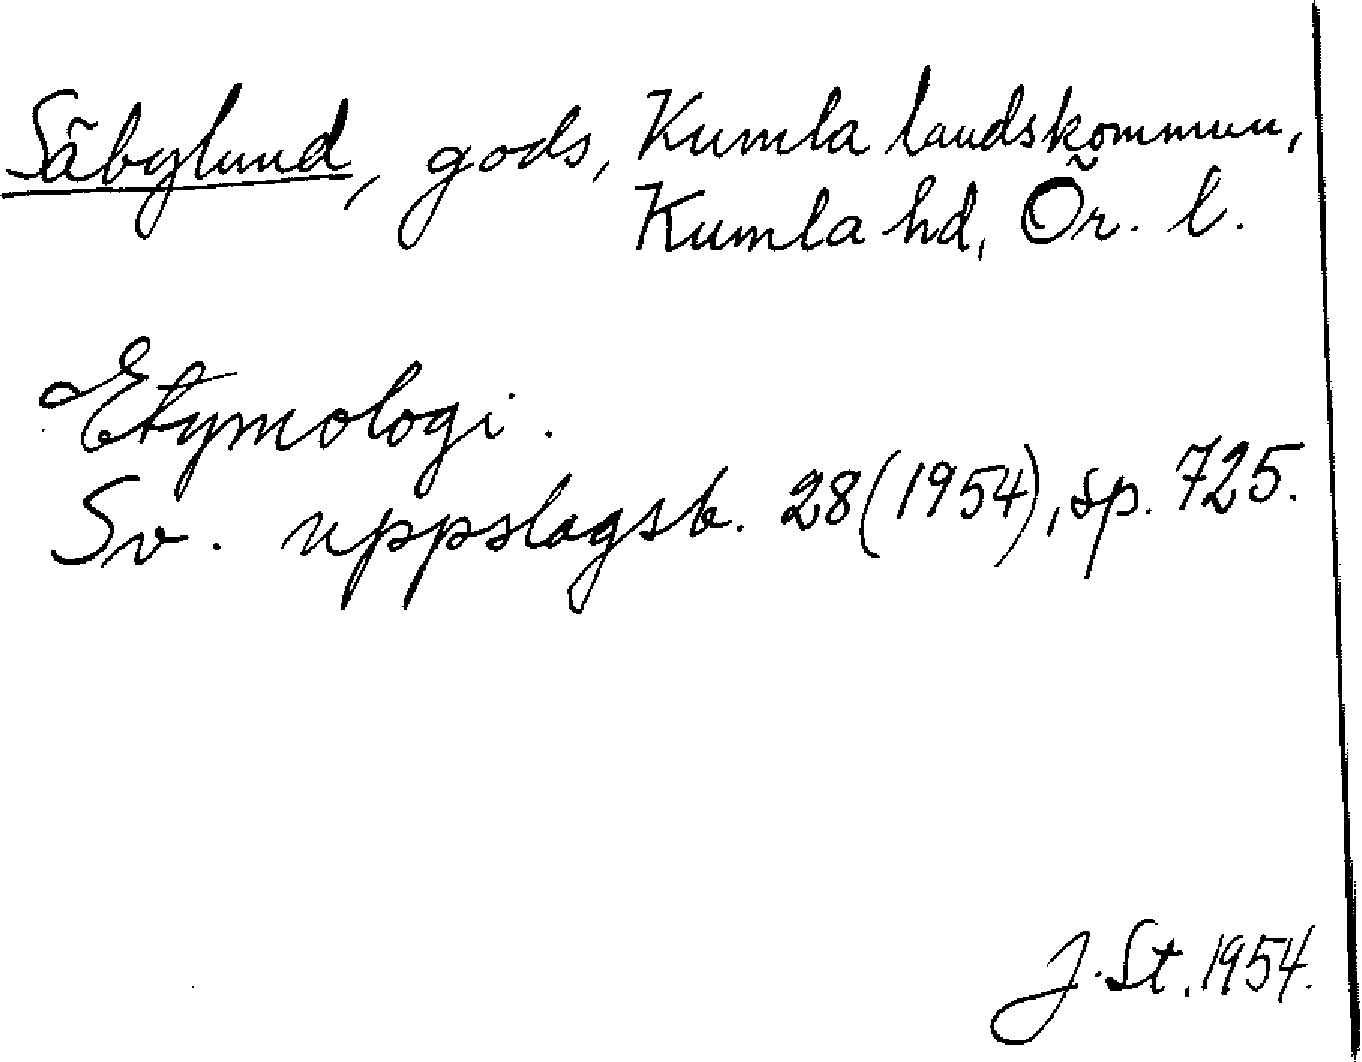 Säbylund, gods, Kumla landskommun,
Kumla hd, Ör. l.
Etymologi.
Sv. uppslagsb. 28 (1954), sp. 725.
J. St. 1954.